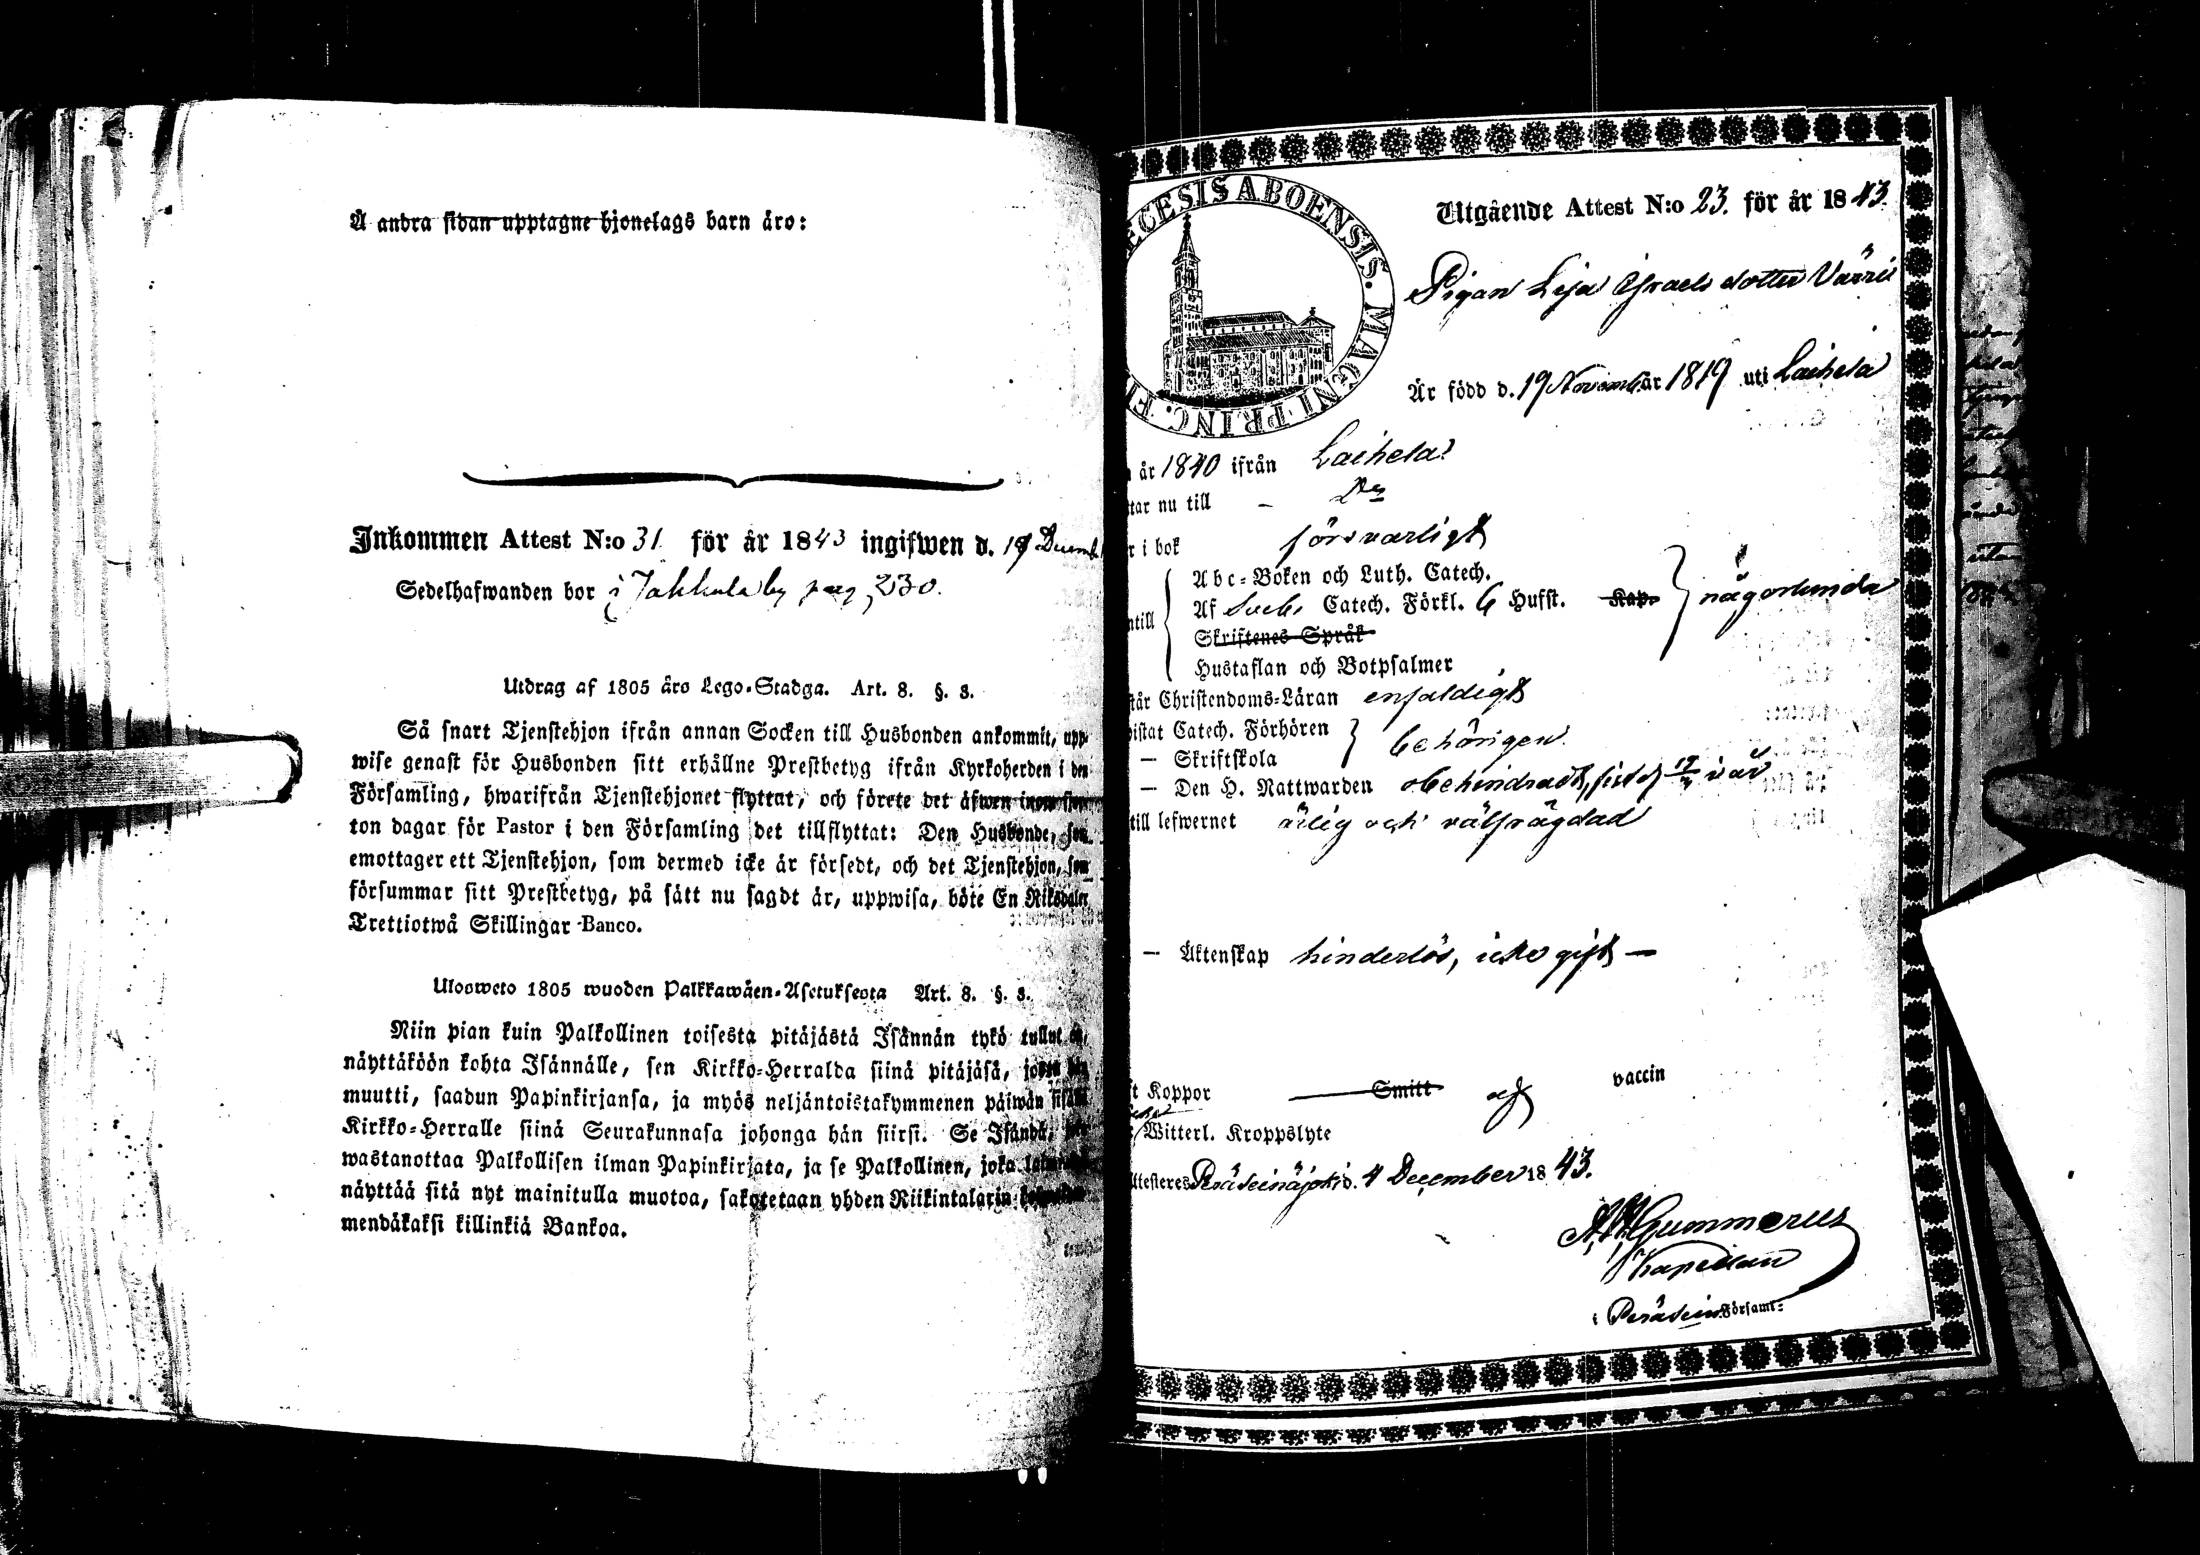 Å andra sidan upptagne hjonelags barn äro:
Inkommen Attest N:o 31. för år 1843 ingifwen d. 19 Decemb
Sedelhafwanden bor i Jakkula by pag 230.
Utdrag af 1805 års Lego-Stadga. Art. 8. §. 3.
Så snart Tjenstehjon ifrån annan Socken till Husbonden ankommit, upp-
wise genast för Husbonden sitt erhållne Prestbetyg ifrån Kyrkoherden i den
Församling, hwarifrån Tjenstehjonet flyttat, och förete det äfwen inom fjor-
ton dagar för Pastor i den Församling det tillflyttat: Den Husbonde, som
emottager ett Tjenstehjon, som dermed icke är försedt, och det Tjenstehjon, som
försummar sitt Prestbetyg, på sätt nu sagdt är, uppwisa, böte En Riksdaler
Trettiotwå Skillingar Banco.
Ulosweto 1805 wuoden Palkkawäen-Asetuksesta Art. 8. §. 3.
Niin pian kuin Palkollinen toisesta pitäjästä Isännän tykö tullut on,
näyttäköön kohta Isännälle, sen Kirkko-Herralda siinä pitäjäsä, josta hän
muutti, saadun Papinkirjansa, ja myös neljäntoistakymmenen päiwän sisällä
Kirkko-Herralle siinä Seurakunnasa johonga hän siirsi. Se Isändä, joka
wastanottaa Palkollisen ilman Papinkirjata, ja se Palkollinen, joka
näyttää sitä nyt mainitulla muotoa, sakotetaan yhden Riikintalarin
mendäkaksi killinkiä Bankoa.
ECESIS ABOENSIS. MAGNI PRINC. FI
Utgående Attest N:o 23. för år 1843.
Pigan Leja Israels dotter Värri
Är född d. 19 November år 1819 uti Laihela
år 1840 ifrån Laihela
tar nu till – Do
r i bok försvarligt
Abc-Boken och Luth. Catech.
Af Sveb. Catech. Förkl. 6 Hufst. Kap.
någorlunda
ntill
Skriftenes Språk
Hustaflan och Botpsalmer
står Christendoms-Läran enfaldigt
istat Catech. Förhören
behörigen.
— Skriftskola
— Den H. Nattwarden obehindradt, sist d. i år
till lefwernet ärlig och välfrägdad
— Äktenskap hinderlös, icke gift —
t Koppor Smitt af vaccin
Witterl. Kroppslyte
ttesteres Peräseinäjoki d. 4 December 1843.
Gummerus
Kapellan
i Peräsein. Församl: